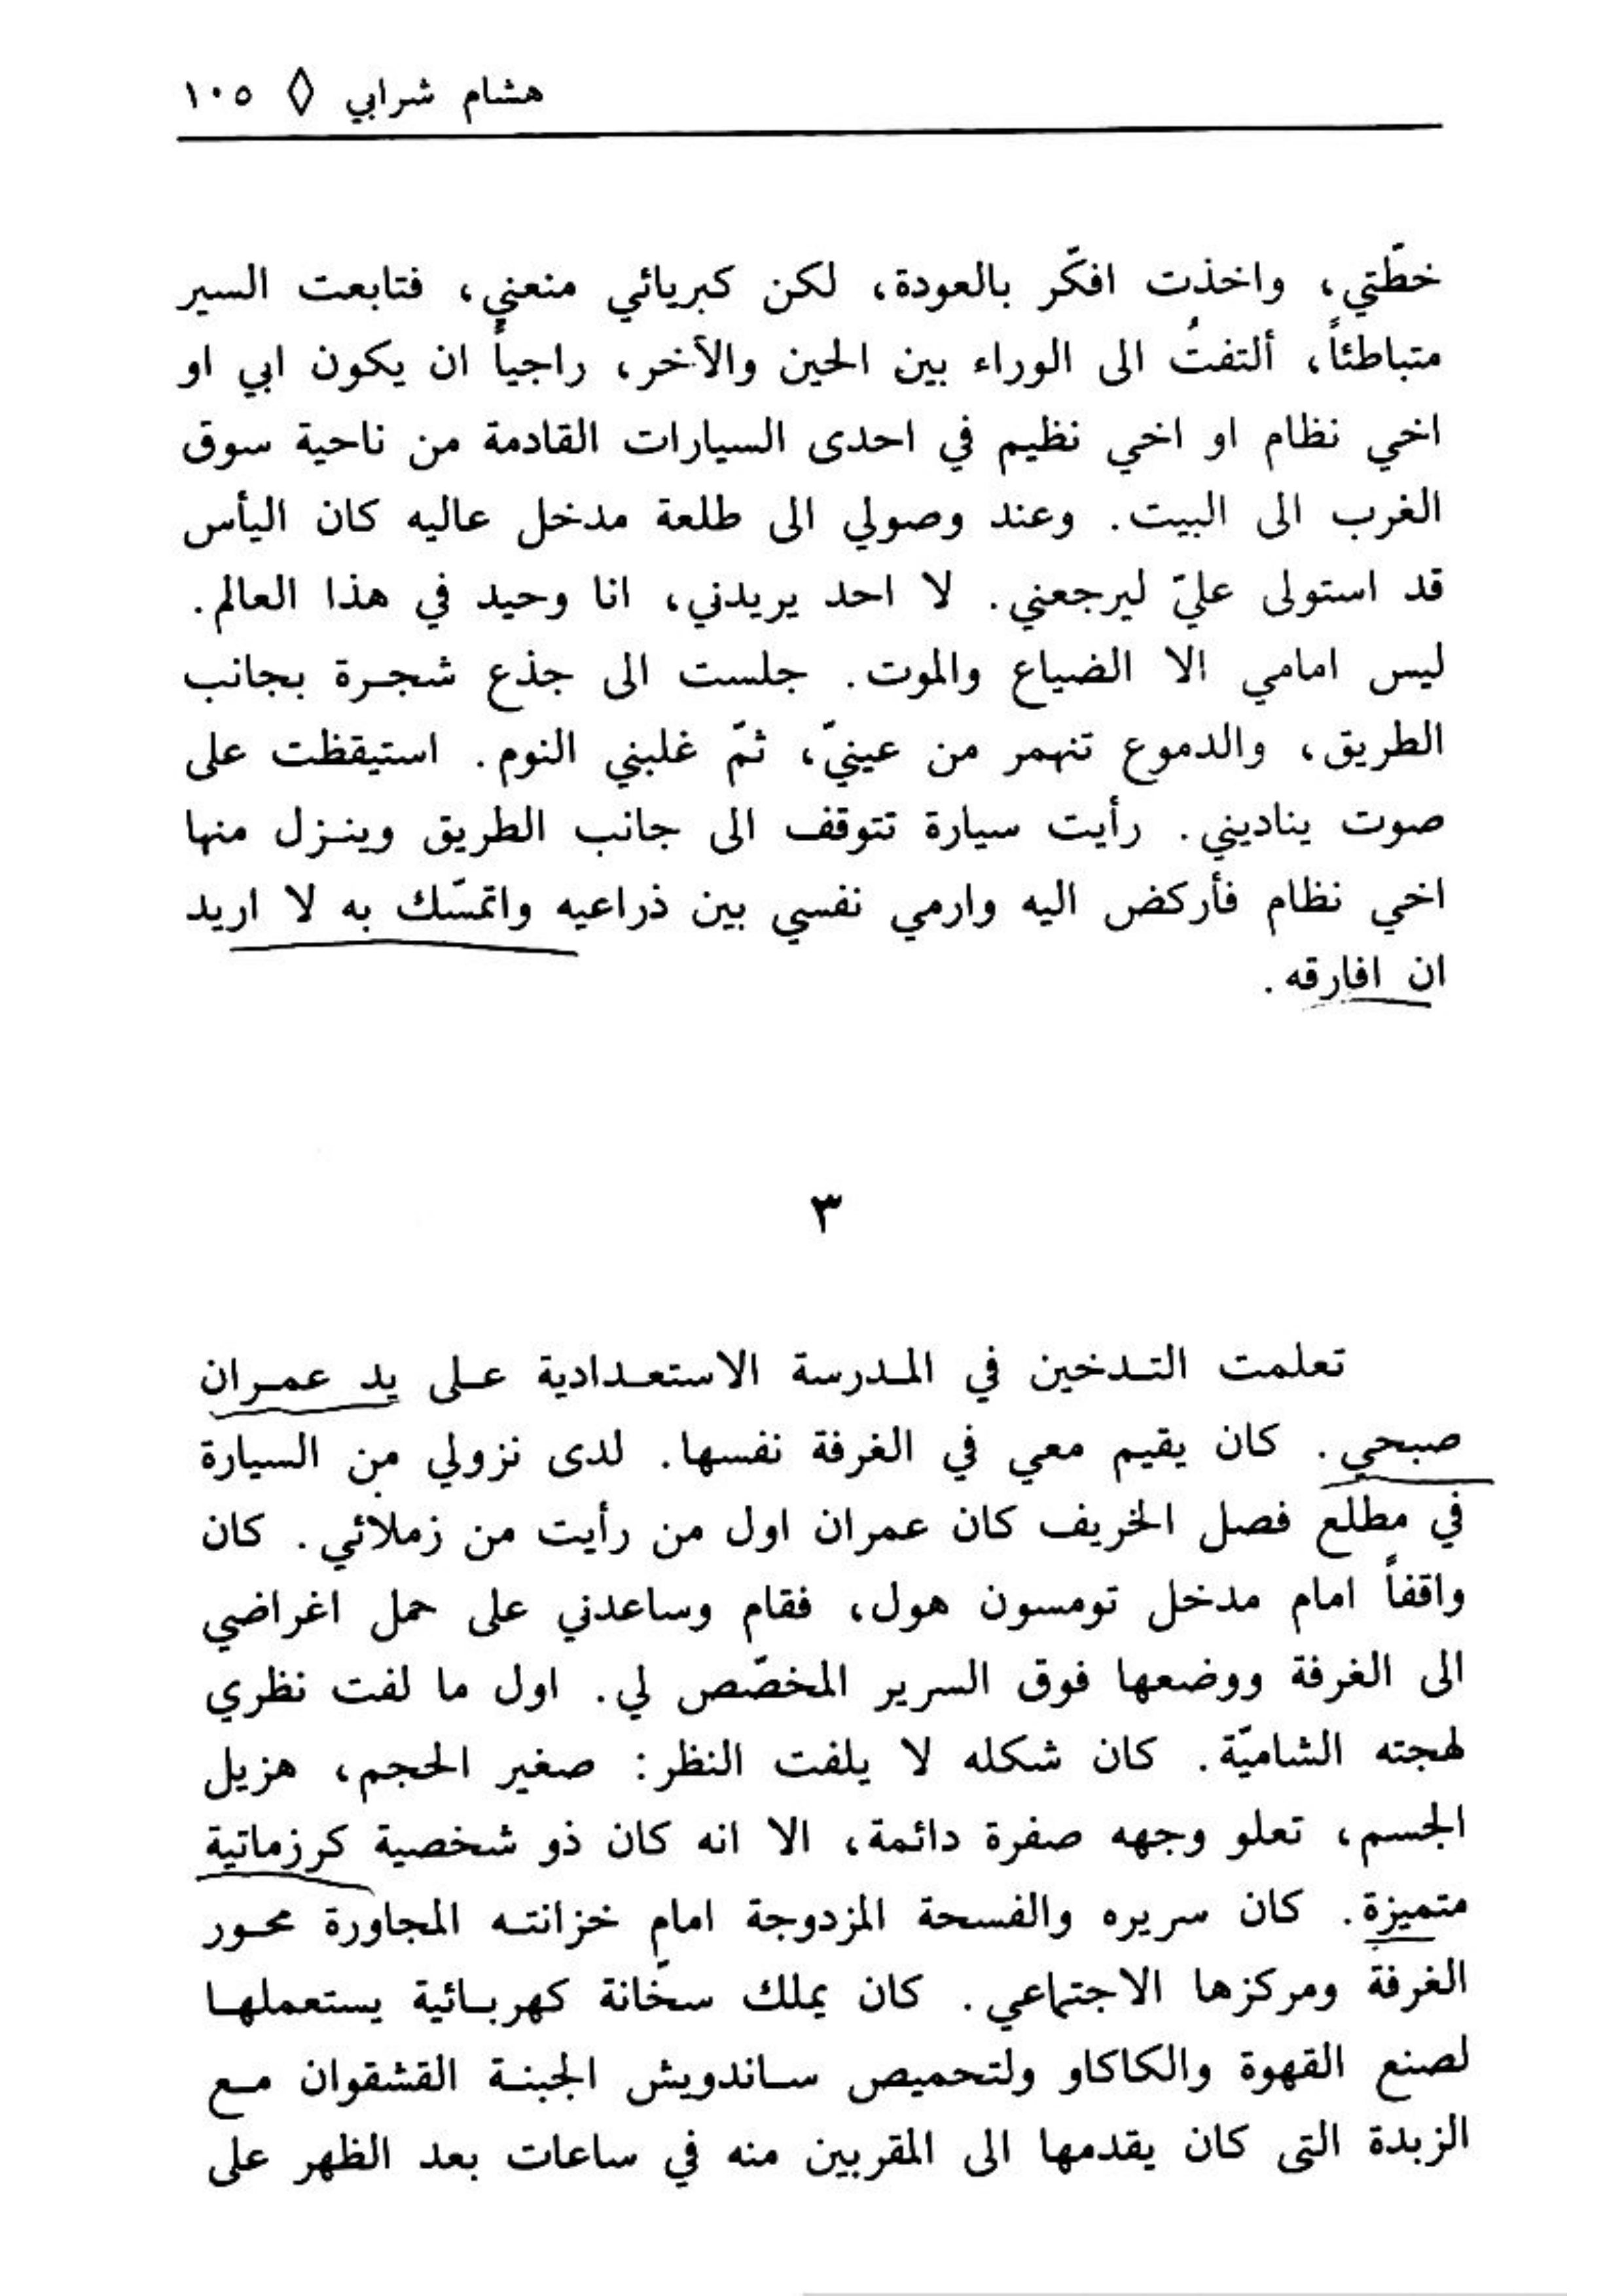 هشام شرابي ◊ ١٠٥
خطّتي، واخذت افكّر بالعودة، لكن كبريائي منعني، فتابعت السير
متباطئاً، ألتفتُ الى الوراء بين الحين والآخر، راجياً ان يكون ابي او
اخي نظام او اخي نظيم في احدى السيارات القادمة من ناحية سوق
الغرب الى البيت. وعند وصولي الى طلعة مدخل عاليه كان اليأس
قد استولى عليّ ليرجعني. لا احد يريدني، انا وحيد في هذا العالم.
ليس امامي الا الضياع والموت. جلست الى جذع شجرة بجانب
الطريق، والدموع تنهمر من عينيّ، ثمّ غلبني النوم. استيقظت على
صوت يناديني. رأيت سيارة تتوقف الى جانب الطريق وينزل منها
اخي نظام فأركض اليه وارمي نفسي بين ذراعيه واتمسّك به لا اريد
ان افارقه.
٣
تعلمت التدخين في المدرسة الاستعدادية على يد عمران
صبحي. كان يقيم معي في الغرفة نفسها. لدى نزولي من السيارة
في مطلع فصل الخريف كان عمران اول من رأيت من زملائي. كان
واقفاً امام مدخل تومسون هول، فقام وساعدني على حمل اغراضي
الى الغرفة ووضعها فوق السرير المخصّص لي. اول ما لفت نظري
لهجته الشاميّة. كان شكله لا يلفت النظر: صغير الحجم، هزيل
الجسم، تعلو وجهه صفرة دائمة، الا انه كان ذو شخصية كرزماتية
متميزة. كان سريره والفسحة المزدوجة امام خزانته المجاورة محور
الغرفة ومركزها الاجتماعي. كان يملك سخّانة كهربائية يستعملها
لصنع القهوة والكاكاو ولتحميص ساندويش الجبنة القشقوان مع
الزبدة التى كان يقدمها الى المقربين منه في ساعات بعد الظهر على